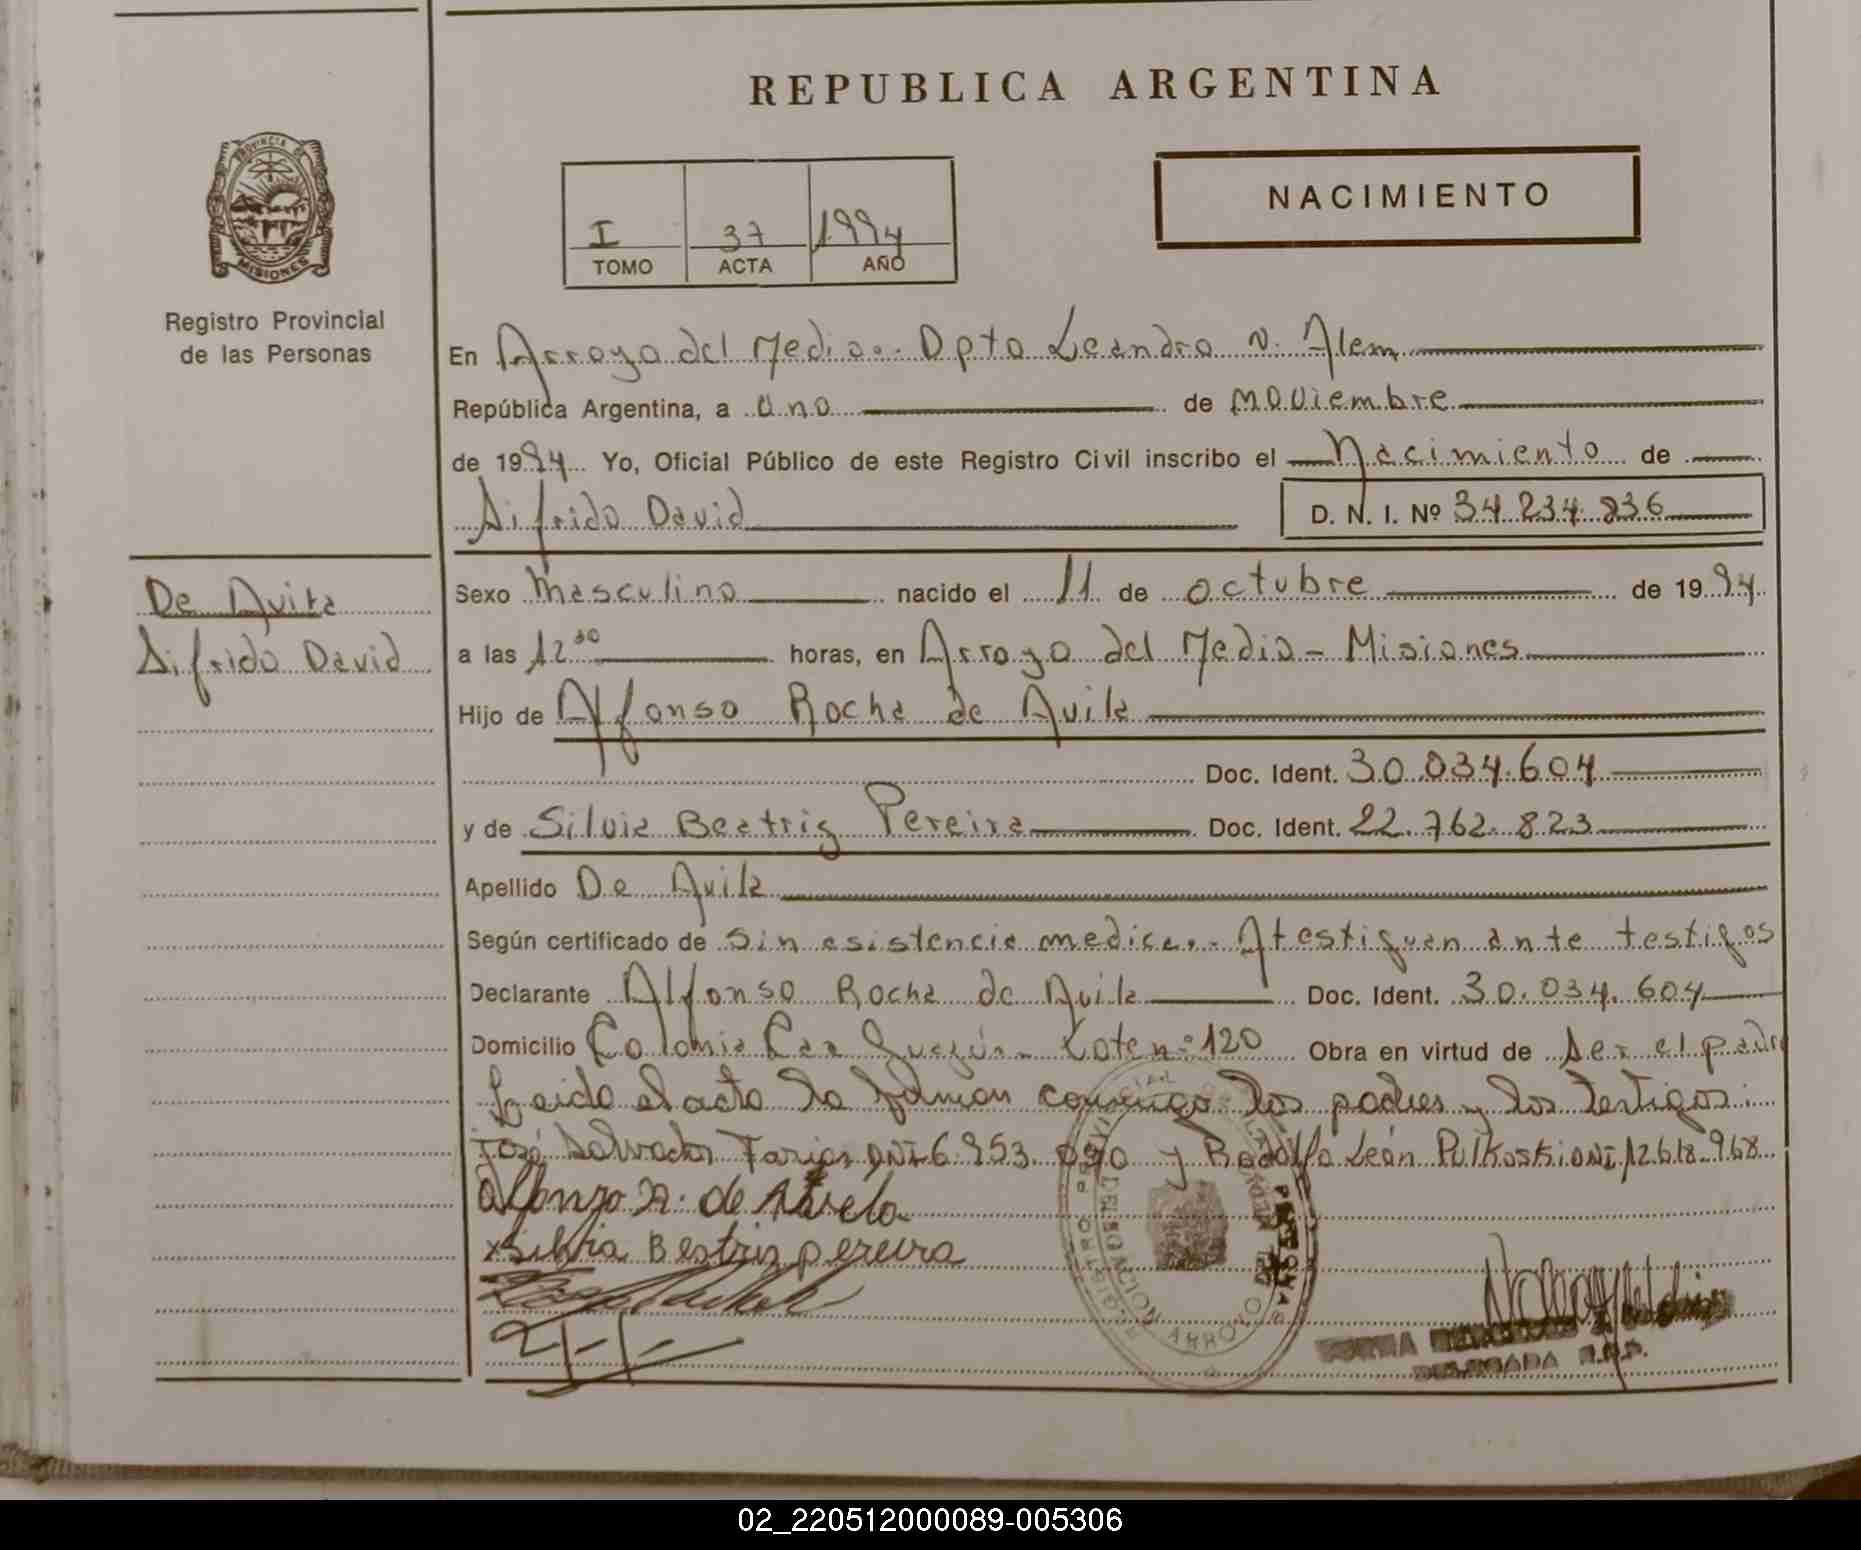 REPUBLICA ARGENTINA
PROVINCIA DE
MISIONES
Registro Provincial
de las Personas
I 37 1994
TOMO ACTA AÑO
NACIMIENTO
En Arroyo del Medio.- Dpto Leandro N. Alem
República Argentina, a uno de noviembre
de 1994 Yo, Oficial Público de este Registro Civil inscribo el Nacimiento de
Sifrido David D. N. I. Nº 34.234.836
De Avila
Sifrido David
Sexo Masculino nacido el 11 de octubre de 1994
a las 12 30 horas, en Arroyo del Medio - Misiones
Hijo de Alfonso Rocha de Avila
Doc. Ident. 30.034.604
y de Silvia Beatriz Pereira Doc. Ident. 22.762.823
Apellido De Avila
Según certificado de sin asistencia medica.- Atestiguan ante testigos
Declarante Alfonso Rocha de Avila Doc. Ident. 30.034.604
Domicilio Colonia Caa Guazú.- Lote n:º 120 Obra en virtud de ser el padre
Leido el acta la firman conmigo los padres y los testigos:
José Salvador Farias DNI 6.953.090 y Rodolfo León Pulkoski DNI 12.618.968
Alfonzo R. de Avela
Silvia Beatriz pereira
REGISTRO PROVINCIAL DE LAS PERSONAS
ARROYO
DELEGADA R.P.P.
02_220512000089-005306